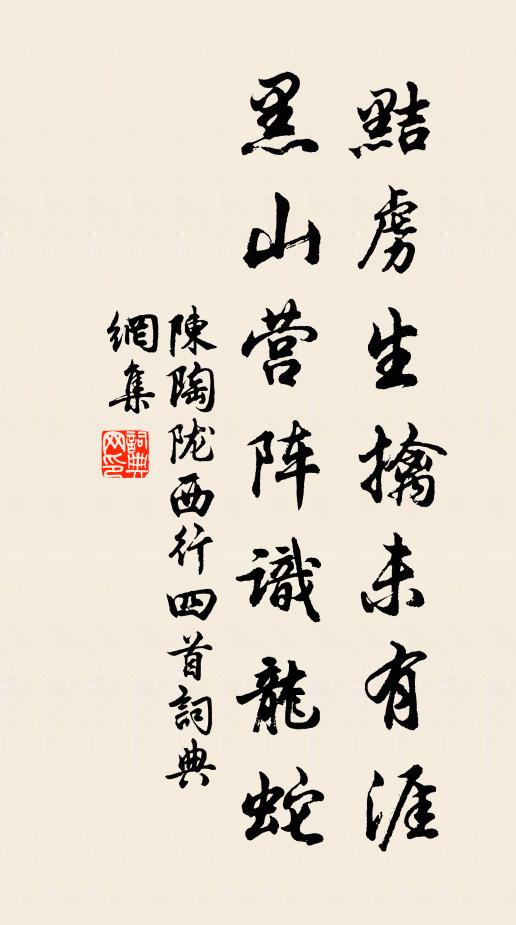 黠虏生擒未有涯
黑山营阵識龍蛇
陳陶陇西行四首詞典
網集
詞典
网印